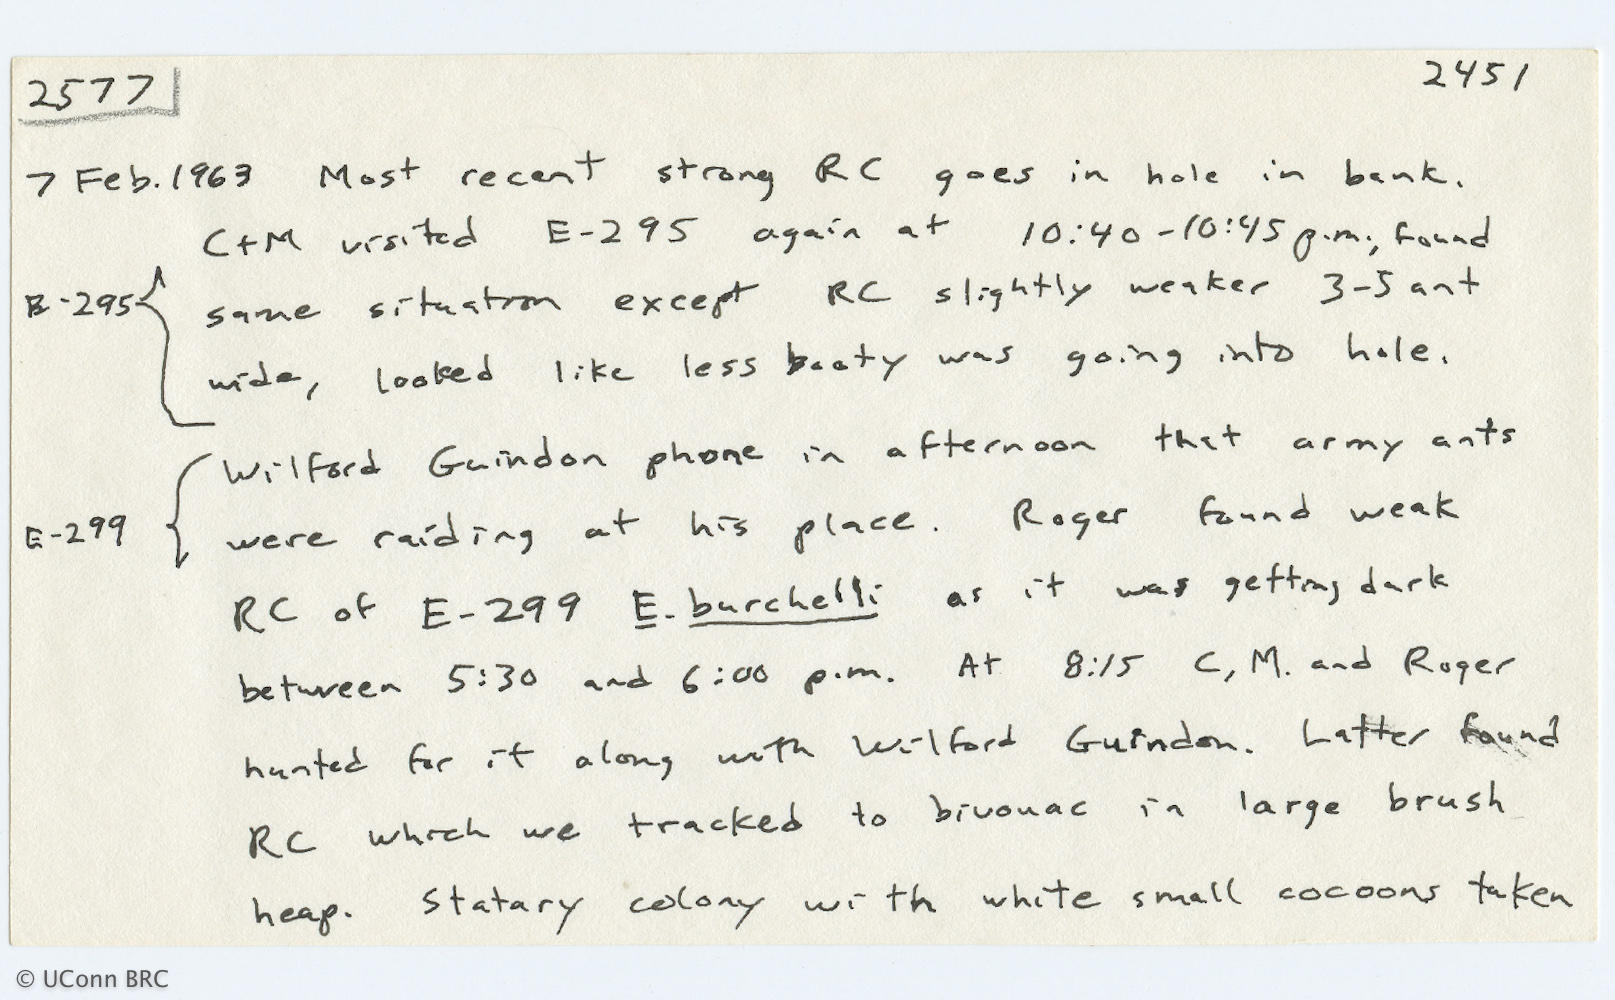 2577
2451
7 Feb. 1963 Most recent strong RC goes in hole in bank.
C+M visited E-295 again at 10:40-10:45 p.m., found
E-295 same situation except RC slightly weaker 3-5 ant
wide, looked like less booty was going into hole.
Wilford Guindon phone in afternoon that army ants
E-299 were raiding at his place. Roger found weak
RC of E-299 E. burchelli as it was getting dark
between 5:30 and 6:00 p.m. At 8:15 C, M. and Roger
hunted for it along with Wilford Guindon. Latter found
RC which we tracked to bivouac in large brush
heap. Statary colony with white small cocoons taken
© UConn BRC